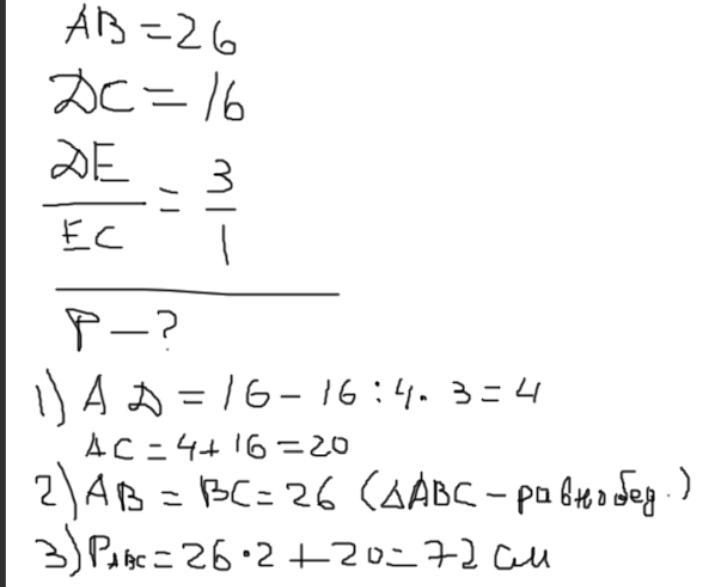 AB = 26
DC = 16
DE/EC = 3/1
P – ?
1) AD = 16 - 16 : 4 · 3 = 4
AC = 4 + 16 = 20
2) AB = BC = 26 (△ABC - равнобед.)
3) P_ABC = 26 · 2 + 20 = 72 см